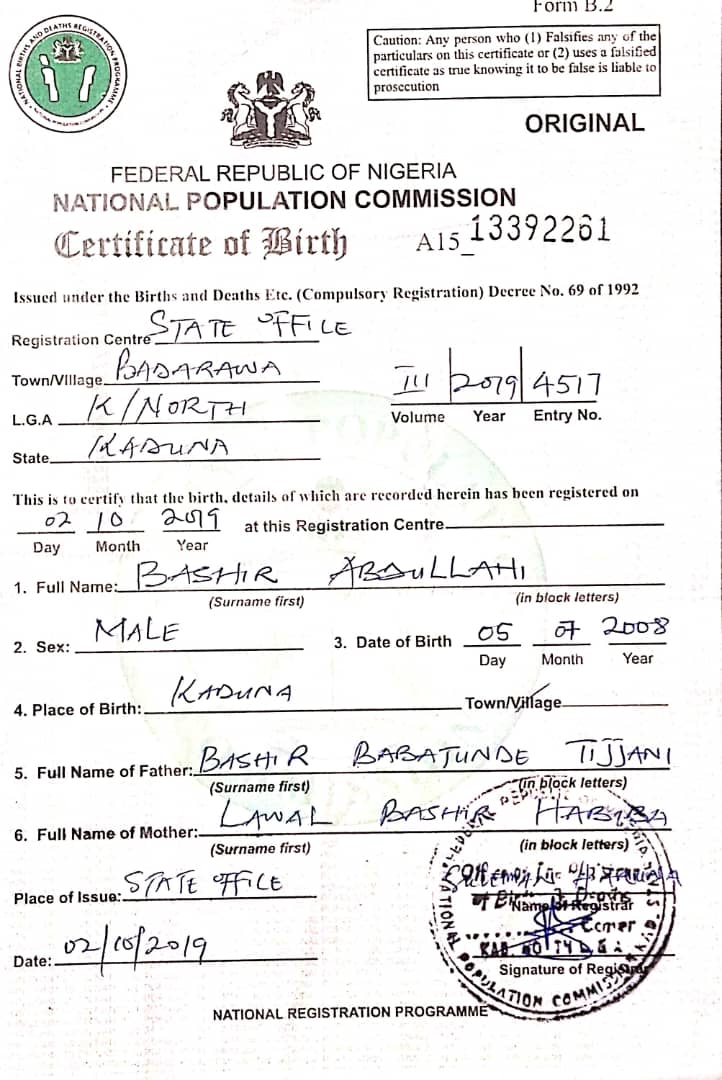 Form B.2
NATIONAL BIRTHS AND DEATHS REGISTRATION PROGRAMME
Caution: Any person who (1) Falsifies any of the
particulars on this certificate or (2) uses a falsified
certificate as true knowing it to be false is liable to
prosecution
ORIGINAL
FEDERAL REPUBLIC OF NIGERIA
NATIONAL POPULATION COMMISSION
Certificate of Birth A15_13392261
Issued under the Births and Deaths Etc. (Compulsory Registration) Decree No. 69 of 1992
Registration Centre STATE OFFICE
Town/Village BADARAWA
III 2019 4517
Volume Year Entry No.
L.G.A K/NORTH
State KADUNA
This is to certify that the birth, details of which are recorded herein has been registered on
02 10 2019 at this Registration Centre
Day Month Year
1. Full Name: BASHIR ABDULLAHI
(Surname first) (in block letters)
2. Sex: MALE 3. Date of Birth 05 07 2008
Day Month Year
4. Place of Birth: KADUNA Town/Village
5. Full Name of Father: BASHIR BABATUNDE TIJJANI
(Surname first) (in block letters)
6. Full Name of Mother: LAWAL BASHIR HABIBA
(Surname first) (in block letters)
Place of Issue: STATE OFFICE
Name of Registrar
Date: 02/10/2019
Signature of Registrar
NATIONAL POPULATION COMMISSION
NATIONAL REGISTRATION PROGRAMME